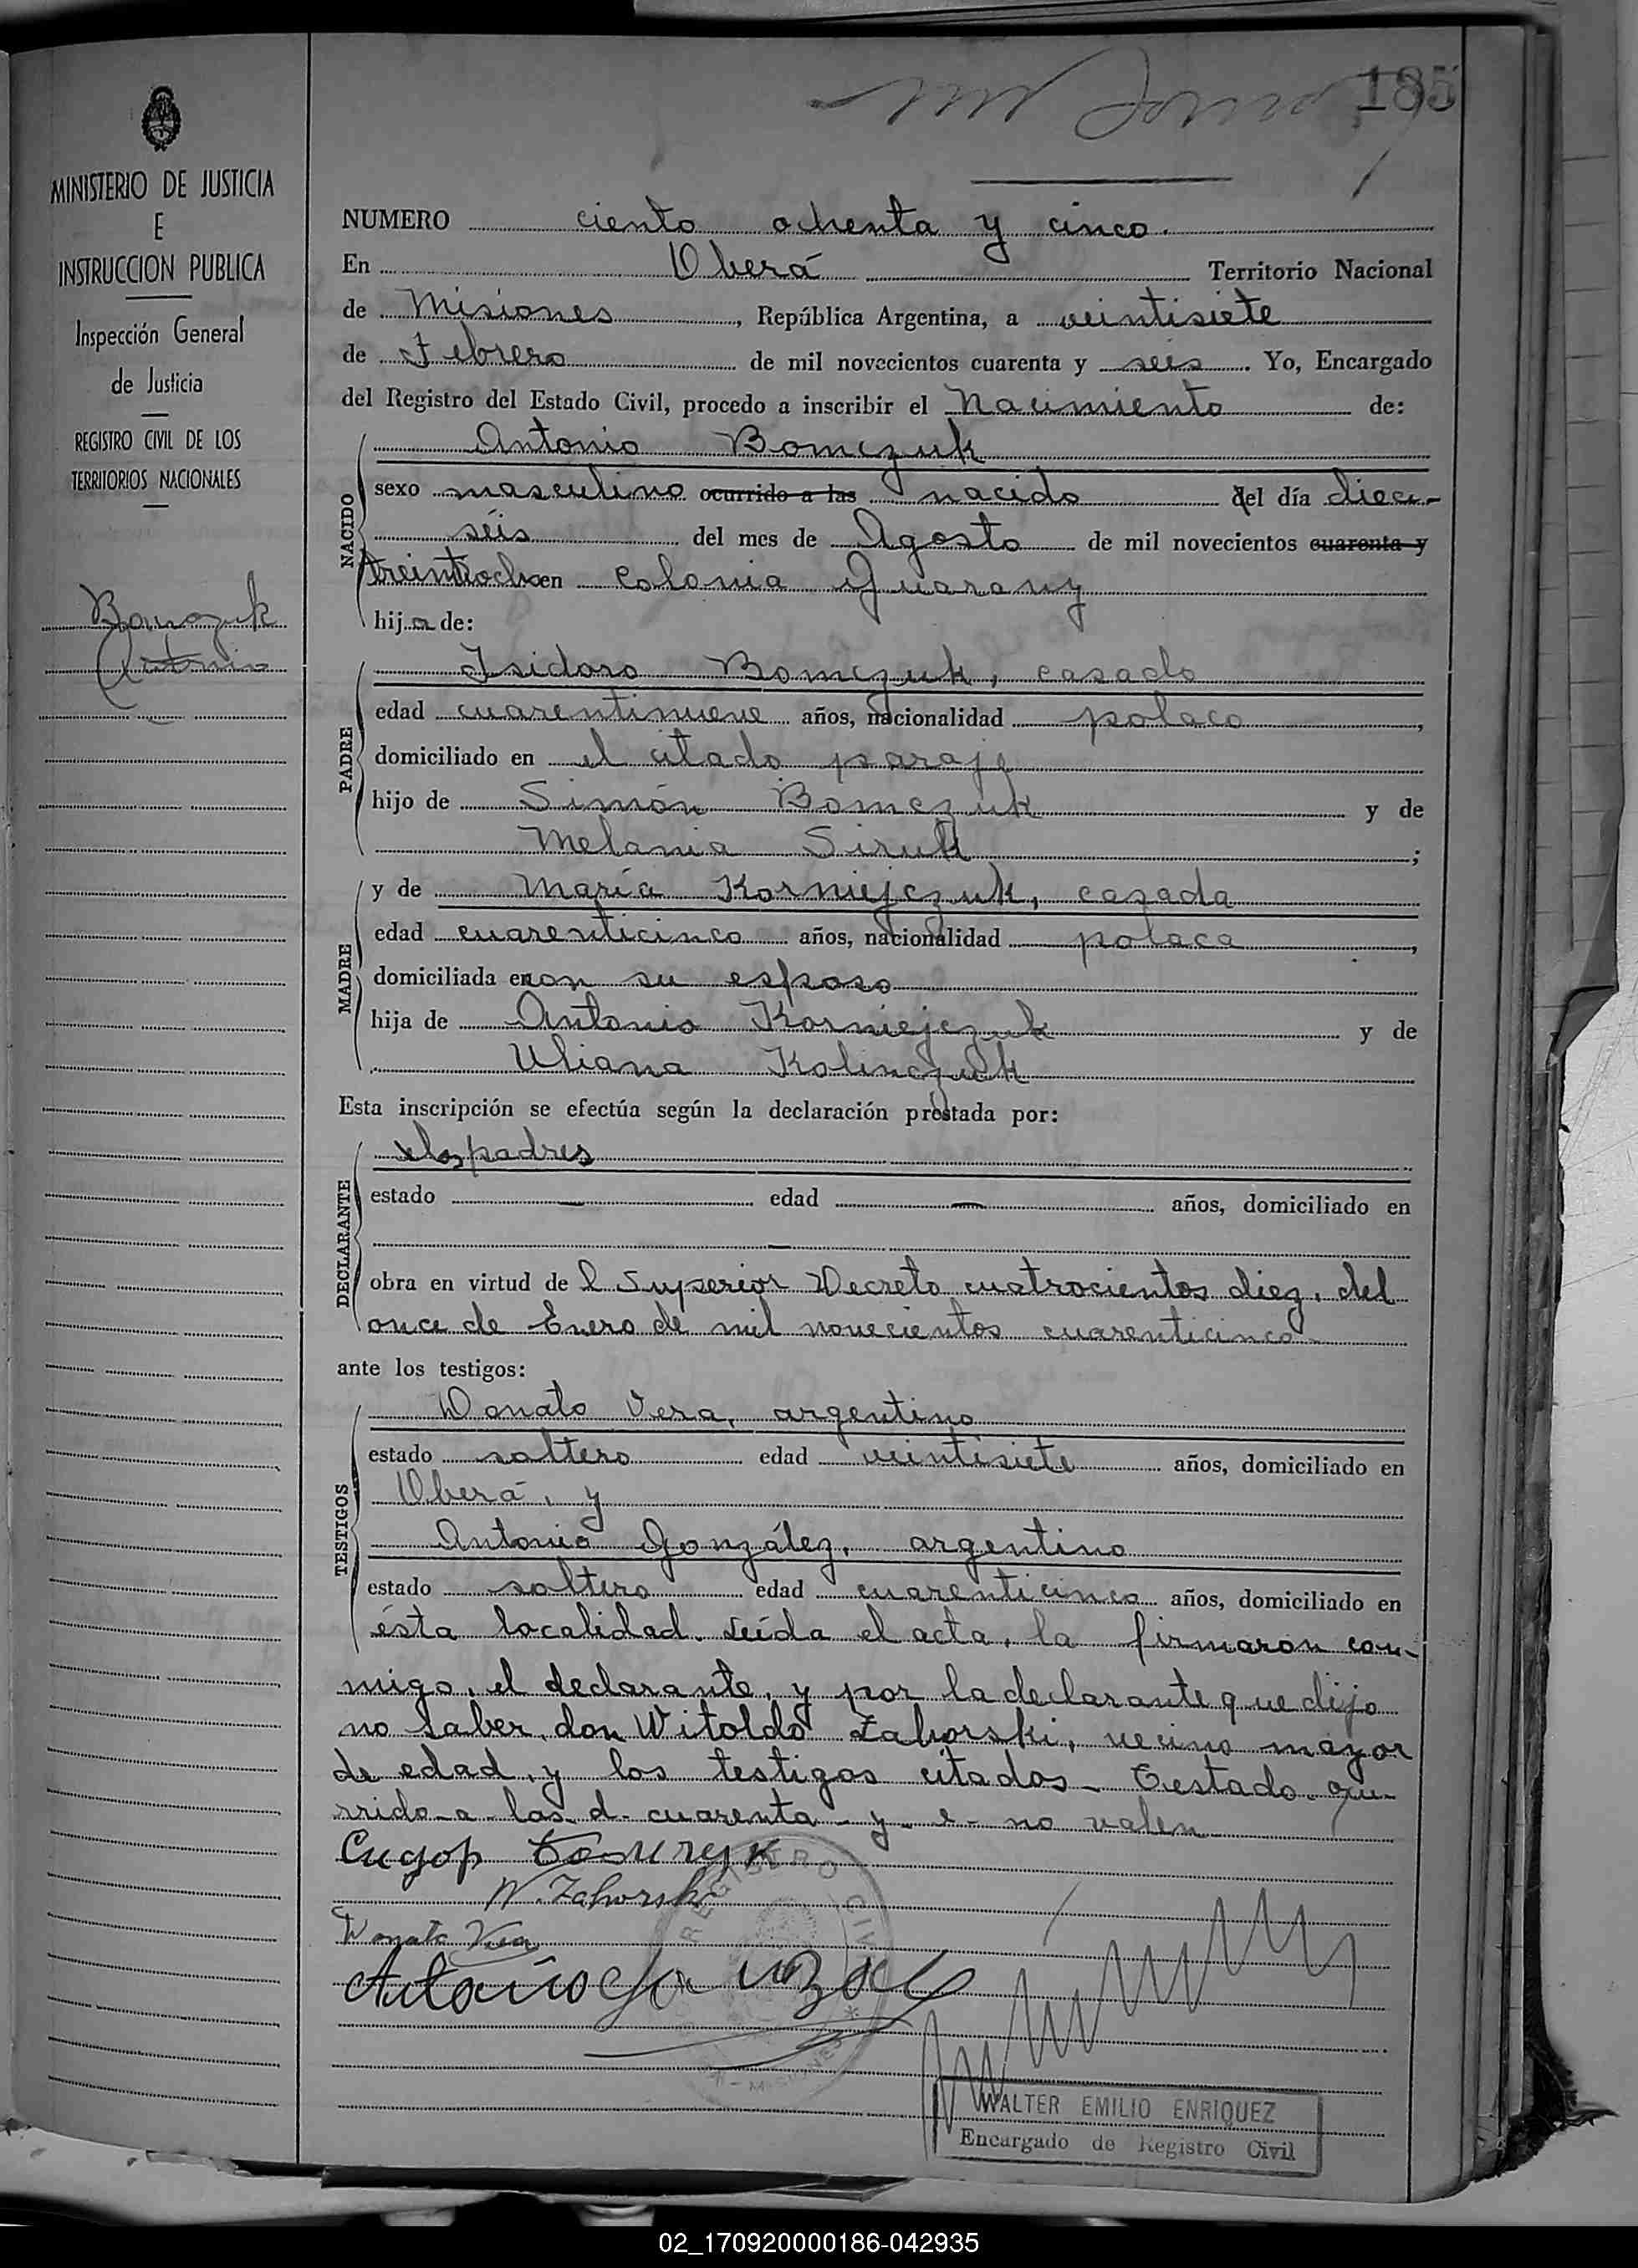 185
MINISTERIO DE JUSTICIA
E
INSTRUCCION PUBLICA
Inspección General
de Justicia
REGISTRO CIVIL DE LOS
TERRITORIOS NACIONALES
Antonio
NUMERO ciento ochenta y cinco.
En Oberá Territorio Nacional
de Misiones, República Argentina, a veintisiete
de Febrero de mil novecientos cuarenta y seis. Yo, Encargado
del Registro del Estado Civil, procedo a inscribir el Nacimiento de:
NACIDO
Antonio Bomczuk
sexo masculino ocurrido a las nacido del día dieci-
séis del mes de Agosto de mil novecientos cuarenta y
treintiocho en Colonia Guarany
hijo de:
PADRE
Isidoro Bomczuk, casado
edad cuarentinueve años, nacionalidad polaco,
domiciliado en el citado paraje
hijo de Simón Bomczuk y de
Melania Siruk;
MADRE
y de María Korniejczuk, casada
edad cuarenticinco años, nacionalidad polaca,
domiciliada con su esposo
hija de Antonio Korniejczuk y de
Uliana Kolinczuk
Esta inscripción se efectúa según la declaración prestada por:
DECLARANTE
los padres
estado — edad — años, domiciliado en
—
obra en virtud del Superior Decreto cuatrocientos diez, del
once de Enero de mil novecientos cuarenticinco-
ante los testigos:
TESTIGOS
Donato Vera, argentino
estado soltero edad veintisiete años, domiciliado en
Oberá, y
Antonio González, argentino
estado soltero edad cuarenticinco años, domiciliado en
ésta localidad. Leída el acta, la firmaron con-
migo, el declarante, y por la declarante que dijo
no saber, don Witoldo Zahorski, vecino mayor
de edad, y los testigos citados- Testado- ocu-
rrido- a- las- d- cuarenta- y- e- no valen
W. Zahorski
Donato Vera
Antonio Gonzalez
REGISTRO CIVIL
WALTER EMILIO ENRIQUEZ
Encargado de Registro Civil
02_170920000186-042935